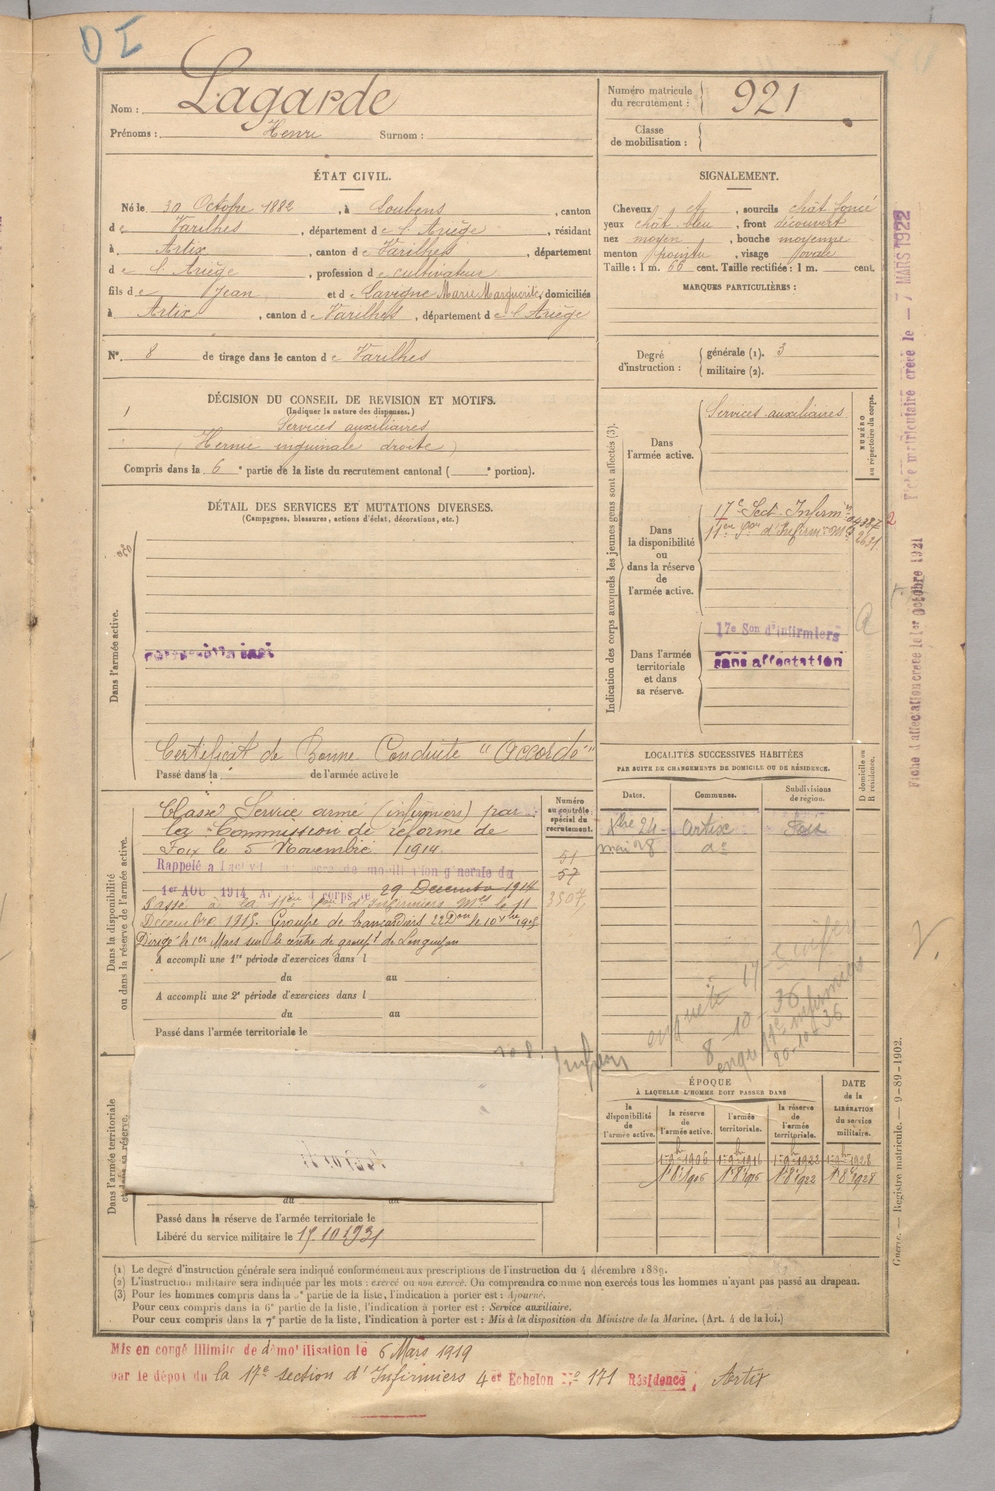 D I
Nom : Lagarde
Prénoms : Henri Surnom :
Numéro matricule du recrutement : 921
Classe de mobilisation :
ÉTAT CIVIL.
Né le 30 Octobre 1882, à Loubens, canton
de Varilhes, département de l'Ariège, résidant
à Artix, canton de Varilhes, département
de l'Ariège, profession de cultivateur
fils de Jean et de Lavigne Marie Marguerite, domiciliés
à Artix, canton de Varilhes, département de l'Ariège
N° 8 de tirage dans le canton de Varilhes
SIGNALEMENT.
Cheveux et, sourcils chât foncé
yeux chât bleu, front découvert
nez moyen, bouche moyenne
menton pointu, visage ovale
Taille : 1 m. 66 cent. Taille rectifiée : 1 m. cent.
MARQUES PARTICULIÈRES :
Degré d'instruction : générale (1). 3
militaire (2).
DÉCISION DU CONSEIL DE REVISION ET MOTIFS.
(Indiquer la nature des dispenses.)
Services auxiliaires
(Hernie inguinale droite)
Compris dans la 6e partie de la liste du recrutement cantonal ( e portion).
DÉTAIL DES SERVICES ET MUTATIONS DIVERSES.
(Campagnes, blessures, actions d'éclat, décorations, etc.)
Dans l'armée active.
Certificat de Bonne Conduite "Accordé"
Passé dans la de l'armée active le
Indication des corps auxquels les jeunes gens sont affectés (3).
NUMÉRO au répertoire du corps.
Dans l'armée active.
Services auxiliaires
Dans la disponibilité ou dans la réserve de l'armée active.
17e Sect. Infirm
11en Son d'Infirm Mres 2621
Dans l'armée territoriale et dans sa réserve.
17e Son d'infirmiers
sans affectation
LOCALITÉS SUCCESSIVES HABITÉES
PAR SUITE DE CHANGEMENTS DE DOMICILE OU DE RÉSIDENCE.
Dates. Communes. Subdivisions de région. D domicile ou R résidence.
Xbre 24 Artix Foix
mai 28 do
Dans la disponibilité ou dans la réserve de l'armée active.
Numéro au contrôle spécial du recrutement.
Classé Service armé (infirmiers) par
la Commission de réforme de
Foix le 5 Novembre 1914
51
57
3507
Rappelé à l'activité mobilisation générale du
1er AOU 1914 Ar. au corps le 29 Décembre 1914
Passé à la 11en Son d'Infirmiers Mres le 11
Décembre 1915. Groupe de brancardiers 22 Don le 10 Xbre 1915
Dirigé le 1er Mars sur le centre de groupt de Longuyon
A accompli une 1re période d'exercices dans l
du au
A accompli une 2e période d'exercices dans l
du au
Passé dans l'armée territoriale le
enquête 17
8 - 10 - 36
enqte 17e infirmiers
20-10-36
Dans l'armée territoriale et dans sa réserve.
du au
Passé dans la réserve de l'armée territoriale le
Libéré du service militaire le 15.10.1931
ÉPOQUE
À LAQUELLE L'HOMME DOIT PASSER DANS
DATE de la LIBÉRATION du service militaire.
la disponibilité de l'armée active. la réserve de l'armée active. l'armée territoriale. la réserve de l'armée territoriale.
1er 8bre 1906 1er 8bre 1916 1er 8bre 1922 1er 8bre 1928
(1) Le degré d'instruction générale sera indiqué conformément aux prescriptions de l'instruction du 4 décembre 1889.
(2) L'instruction militaire sera indiquée par les mots : exercé ou non exercé. On comprendra comme non exercés tous les hommes n'ayant pas passé au drapeau.
(3) Pour les hommes compris dans la 5e partie de la liste, l'indication à porter est : Ajourné.
Pour ceux compris dans la 6e partie de la liste, l'indication à porter est : Service auxiliaire.
Pour ceux compris dans la 7e partie de la liste, l'indication à porter est : Mis à la disposition du Ministre de la Marine. (Art. 4 de la loi.)
Mis en congé illimité de démobilisation le 6 Mars 1919
par le dépôt du la 17e section d'Infirmiers 4er Echelon No 171 Résidence : Artix
Fiche d'affectation créée le 1er Octobre 1921
Fiche matriculaire créée le - 7 MARS 1922
Guerre. — Registre matricule. — 9-89-1902.